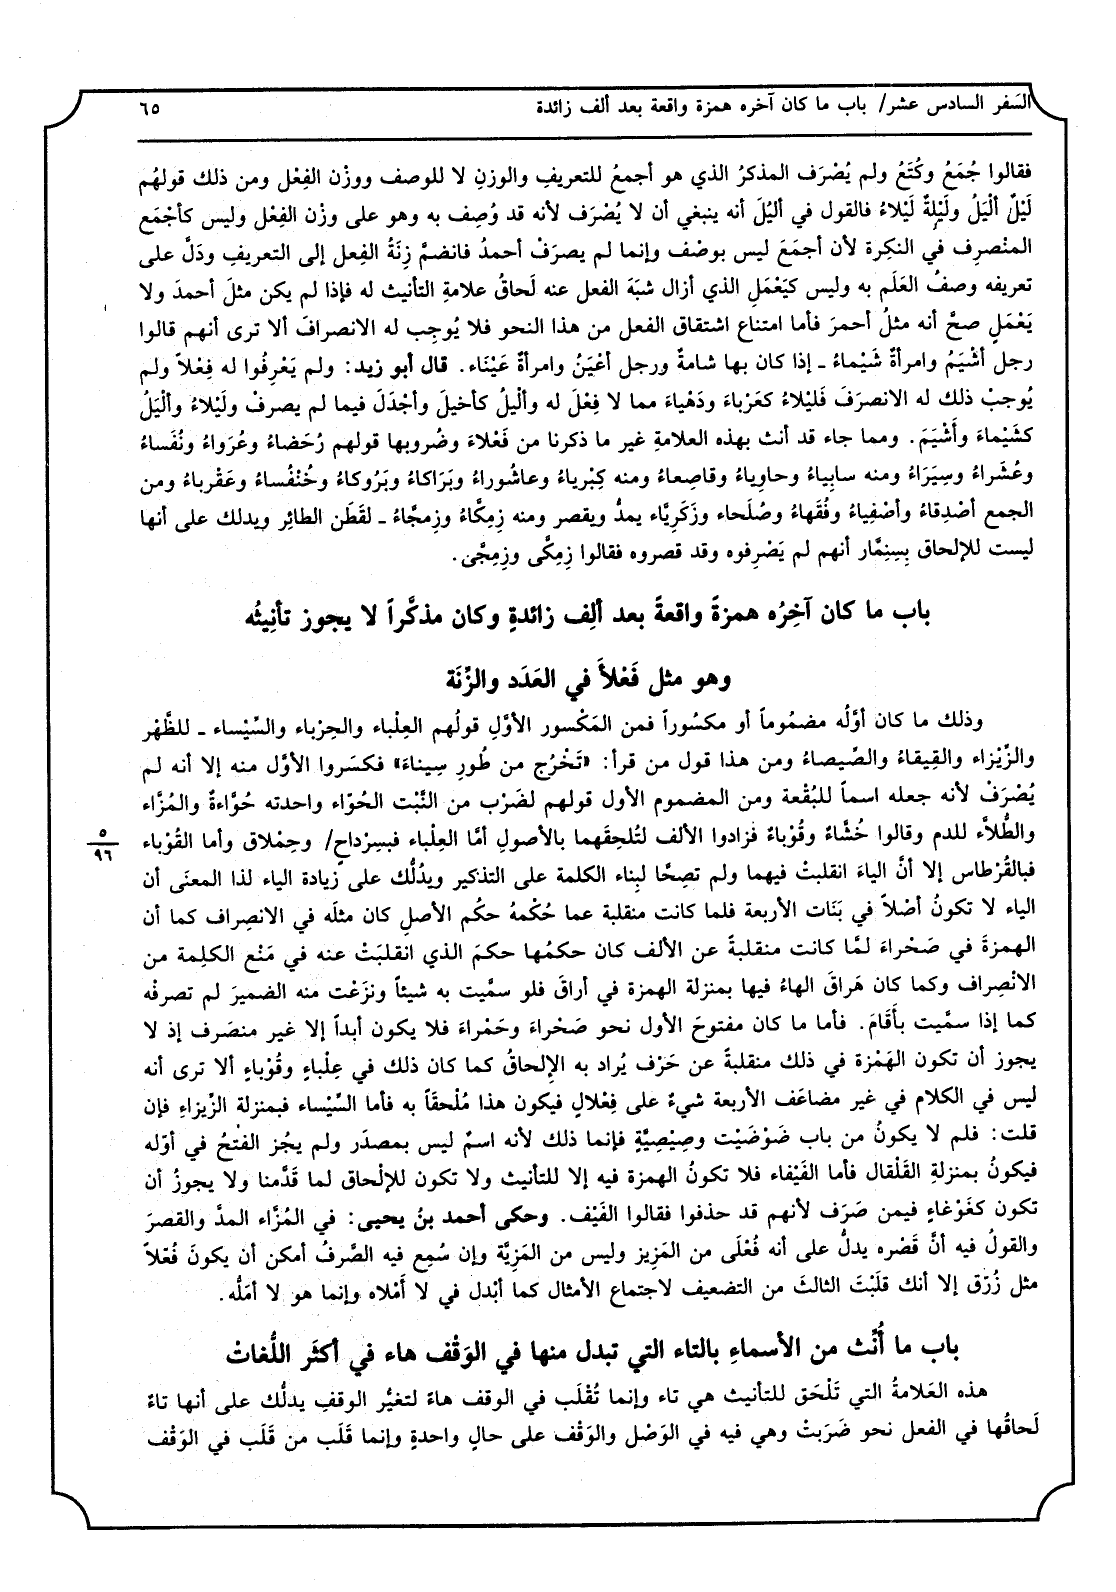 السَفر السادس عشر/ باب ما كان آخره همزة واقعة بعد ألف زائدة ٦٥
فقالوا جُمَعُ وكُتَعُ ولم يُصْرَف المذكرُ الذي هو أجمعُ للتعريفِ والوزنِ لا للوصف ووزْن الفِعْل ومن ذلك قولهُم
لَيْلٌ ألْيَلُ ولَيْلِةٌ لَيْلاءُ فالقول في ألْيُلَ أنه ينبغي أن لا يُصْرَف لأنه قد وُصِف به وهو على وزْن الفِعْل وليس كأجْمَع
المنْصرِف في النكِرة لأن أجمَعَ ليس بوصْف وإنما لم يصرفْ أحمدُ فانضمَّ زِنَةُ الفِعل إلى التعريفِ ودَلَّ على
تعريفه وصفُ العَلَم به وليس كيَعْمَلِ الذي أزال شبَهَ الفعل عنه لَحاقُ علامةِ التأنيث له فإذا لم يكن مثلَ أحمدَ ولا
يَعْمَلٍ صحَّ أنه مثلُ أحمرَ فأما امتناع اشتقاق الفعل من هذا النحو فلا يُوجِب له الانصرافَ ألا ترى أنهم قالوا
رجل أشْيَمُ وامرأةٌ شَيْماءُ ـ إذا كان بها شامةٌ ورجل أعْيَنُ وامرأةٌ عَيْنَاء. قال أبو زيد: ولم يَعْرِفُوا له فِعْلاً ولم
يُوجبْ ذلك له الانصرَفَ فَليْلاءُ كعَرْباءَ ودَهْياءَ مما لا فِعْلَ له وألْيلُ كأخيلَ وأجْدَلَ فيما لم يصرفْ ولَيْلاءُ وألْيَلُ
كشَيْماءَ وأَشْيَمَ. ومما جاء قد أنث بهذه العلامةِ غير ما ذكرنا من فَعْلاءَ وضُروبها قولهم رُحَضاءُ وعُرَواءُ ونُفَساءُ
وعُشَراءُ وسِيَرَاءُ ومنه سابِياءُ وحاوِياءُ وقاصِعاءُ ومنه كِبْرِياءُ وعاشُوراءُ وبَرَاكاءُ وبَرُوكاءُ وخُنْفُساءُ وعَقْرباءُ ومن
الجمع أصْدِقاءُ وأصْفِياءُ وفُقَهاءُ وصُلَحاء وزَكَرِيَّاء يمدُّ ويقصر ومنه زِمِكَّاءُ وزِمِجَّاءُ ـ لقَطَن الطائِر ويدلك على أنها
ليست للإلحاق بِسِنِمَّار أنهم لم يَصْرِفوه وقد قصروه فقالوا زِمِكَّى وزِمِجَّى.
باب ما كان آخِرُه همزةً واقعةً بعد ألِف زائدةٍ وكان مذكَّراً لا يجوز تأنِيثُه
وهو مثل فَعْلأَ في العَدَد والزِّنَة
وذلك ما كان أوَّلُه مضمُوماً أو مكسُوراً فمن المَكْسور الأوَّلِ قولُهم العِلْباء والحِرْباء والسِّيْساء ـ للظَّهْر
والزِّيْزاء والقِيقاءُ والصِّيصاءُ ومن هذا قول من قرأ: «تَخْرُج من طُورِ سِيناءَ» فكسَروا الأوَّل منه إلا أنه لم
يُصْرَفْ لأنه جعله اسماً للبُقْعة ومن المضموم الأول قولهم لضَرْب من النَّبْت الحُوّاء واحدته حُوَّاءةٌ والمُزَّاء
والطُّلاَّء للدم وقالوا خُشَّاءٌ وقُوْباءٌ فزادوا الألف لتُلحِقَهما بالأصولِ أمَّا العِلْباء فبسِرْداحٍ/ وحِمْلاق وأما القُوْباء
٥
٩٦
فبالقُرْطاس إلا أنَّ الياءَ انقلبتْ فيهما ولم تصِحَّا لبِناء الكلمة على التذكير ويدُلُّك على زيادة الياء لذا المعنَى أن
الياء لا تكونُ أصْلاً في بَنَات الأربعة فلما كانت منقلبة عما حُكْمهُ حكُم الأصلِ كان مثلَه في الانصِراف كما أن
الهمزةَ في صَحْراءَ لمَّا كانت منقلبةً عن الألف كان حكمُها حكمَ الذي انقلبَتْ عنه في مَنْع الكلِمة من
الانْصِراف وكما كان هَراقَ الهاءُ فيها بمنزلة الهمزة في أراقَ فلو سمَّيت به شيئاً ونزَعْت منه الضميرَ لم تصرفْه
كما إذا سمَّيت بأَقَامَ. فأما ما كان مفتوحَ الأول نحو صَحْراءَ وحَمْراءَ فلا يكون أبداً إلا غير منصَرف إذ لا
يجوز أن تكون الهَمْزة في ذلك منقلبةً عن حَرْف يُراد به الإِلحاقُ كما كان ذلك في عِلْباءٍ وقُوْباءٍ ألا ترى أنه
ليس في الكلام في غير مضاعَف الأربعة شيءٌ على فِعْلالٍ فيكون هذا مُلْحقَاً به فأما السِّيْساء فبمنزلة الزِّيزاءِ فإن
قلت: فلم لا يكونُ من باب ضَوْضَيْت وصِيْصِيَّةٍ فإنما ذلك لأنه اسمٌ ليس بمصدَر ولم يجُز الفتْحُ في أوّله
فيكونُ بمنزلةِ القَلْقال فأما الفَيْفاء فلا تكونُ الهمزة فيه إلا للتأنيث ولا تكون للإلْحاق لما قَدَّمنا ولا يجوزُ أن
تكون كغَوْغاءٍ فيمن صَرَف لأنهم قد حذفوا فقالوا الفَيْف. وحكى أحمد بنُ يحيى: في المُزَّاء المدَّ والقصرَ
والقولُ فيه أنَّ قَصْره يدلُّ على أنه فُعْلَى من المَزِيز وليس من المَزِيَّة وإن سُمِع فيه الصَّرفُ أمكن أن يكونَ فُعَّلاً
مثل زُرّق إلا أنك قلَبْتَ الثالثَ من التضعيف لاجتماع الأمْثال كما أبْدل في لا أَمْلاه وإنما هو لا أمَلُّه.
باب ما أُنِّث من الأسماءِ بالتاء التي تبدل منها في الوَقْف هاء في أكثَر اللُّغاتْ
هذه العَلامةُ التي تَلْحَق للتأنيث هي تاء وإنما تُقْلَب في الوقف هاءً لتغيُّر الوقفِ يدلُّك على أنها تاءٌ
لَحاقُها في الفعل نحو ضَرَبتْ وهي فيه في الوَصْل والوَقْف على حالٍ واحدةٍ وإنما قَلَب من قَلَب في الوَقْف